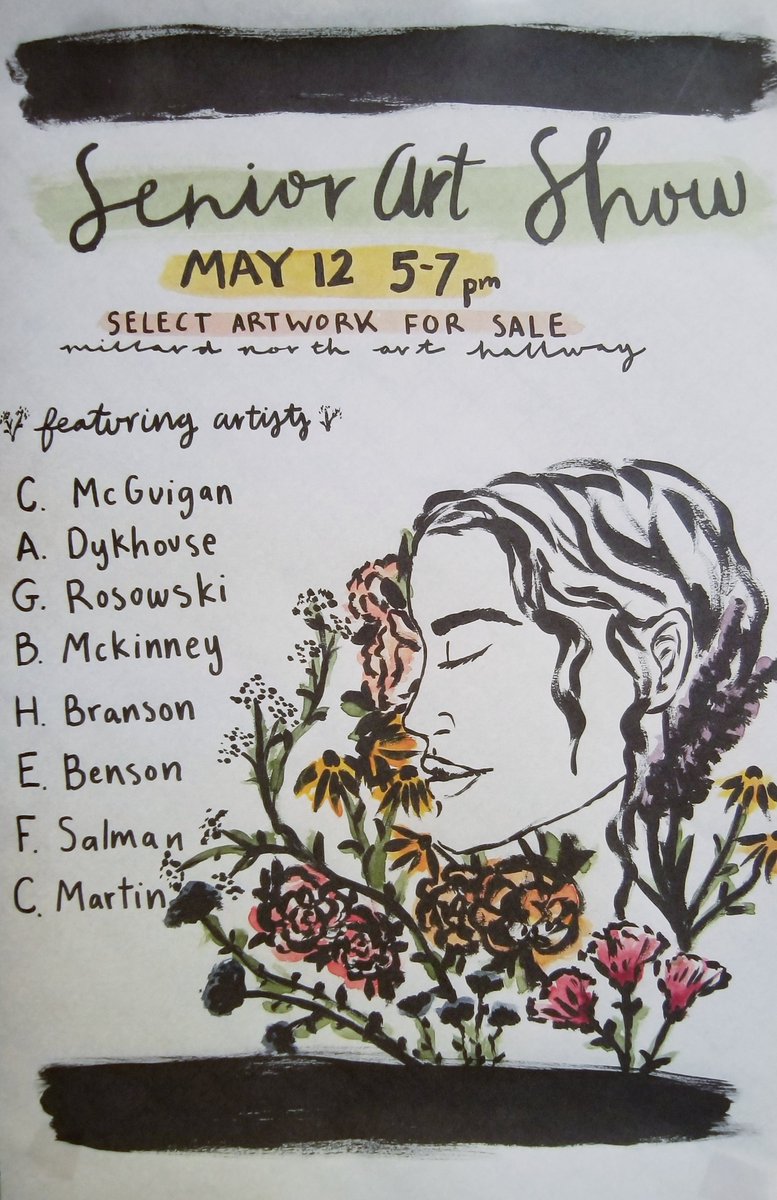 Senior Art Show
MAY 12 5-7 pm
SELECT ARTWORK FOR SALE
millard north art hallway
featuring artists
C. McGuigan
A. Dykhouse
G. Rosowski
B. Mckinney
H. Branson
E. Benson
F. Salman
C. Martin